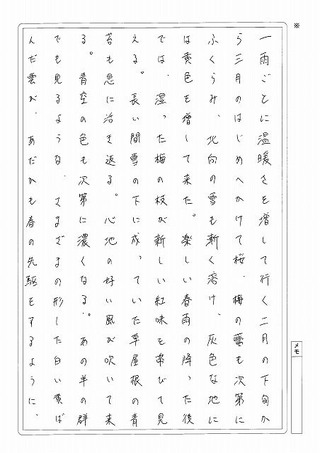 ※
一雨ごとに温暖さを増して行く二月の下旬か
ら三月のはじめへかけて桜、梅の蕾も次第に
ふくらみ、北向の雪も漸く溶け、灰色な地に
は黄色を増して来た。楽しい春雨の降った後
では、湿った梅の枝が新しい紅味を帯びて見
える。長い間雪の下に成っていた草屋根の青
苔も急に活き返る。心地の好い風が吹いて来
る。青空の色も次第に濃くなる。あの羊の群
でも見るような、さまざまの形した白い黄ば
んだ雲が、あだかも春の先駆をするように、
メモ